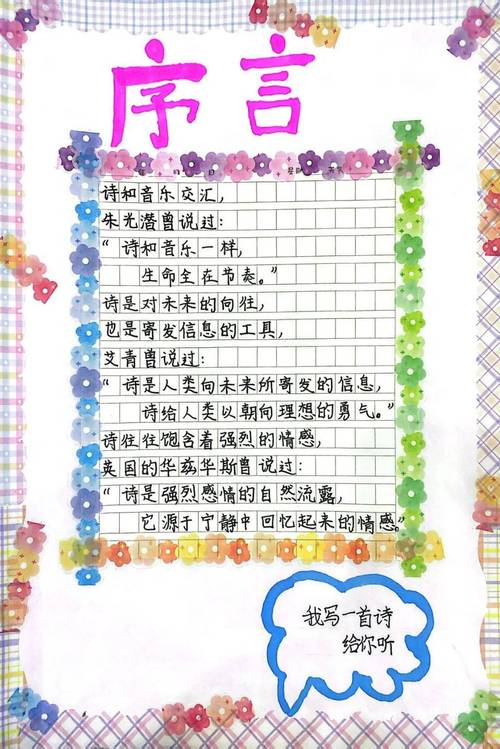 序言
诗和音乐交汇，
朱光潜曾说过：
“诗和音乐一样，
生命全在节奏。”
诗是对未来的向往，
也是寄发信息的工具，
艾青曾说过：
“诗是人类向未来所寄发的信息，
诗给人类以朝向理想的勇气。”
诗往往饱含着强烈的情感，
英国的华兹华斯曾说过：
“诗是强烈感情的自然流露，
它源于宁静中回忆起来的情感”
我写一首诗
给你听